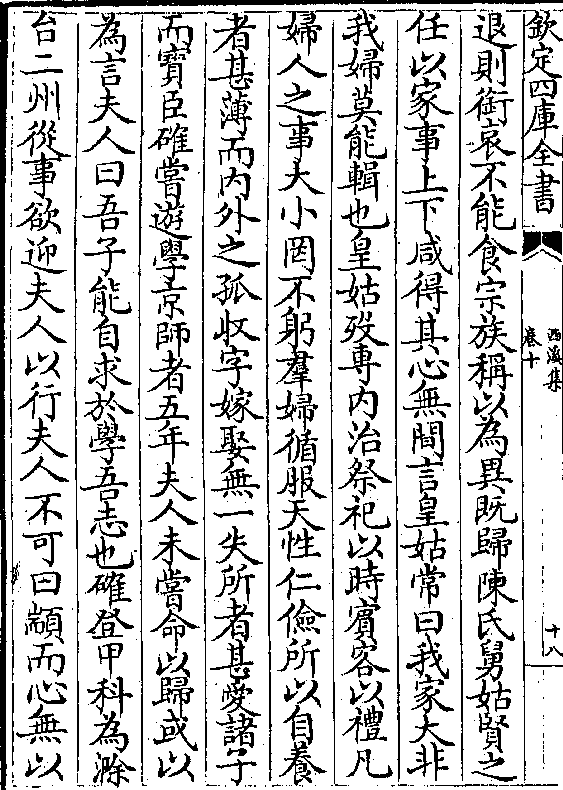 欽定四庫全書
西溪集
卷十
十八
退則銜哀不能食宗族稱以為異既歸陳氏舅姑賢之
任以家事上下咸得其心無間言皇姑常曰我家大非
我婦莫能輯也皇姑歿專內治祭祀以時賓容以禮凡
婦人之事大小罔不躬羣婦循服天性仁儉所以自養
者甚薄而内外之孤收字嫁娶無一失所者甚愛諸子
而寶臣確嘗遊學京師者五年夫人未嘗命以歸或以
為言夫人曰吾子能自求於學吾志也確登甲科為滁
台二州從事欲迎夫人以行夫人不可曰顓而心無以